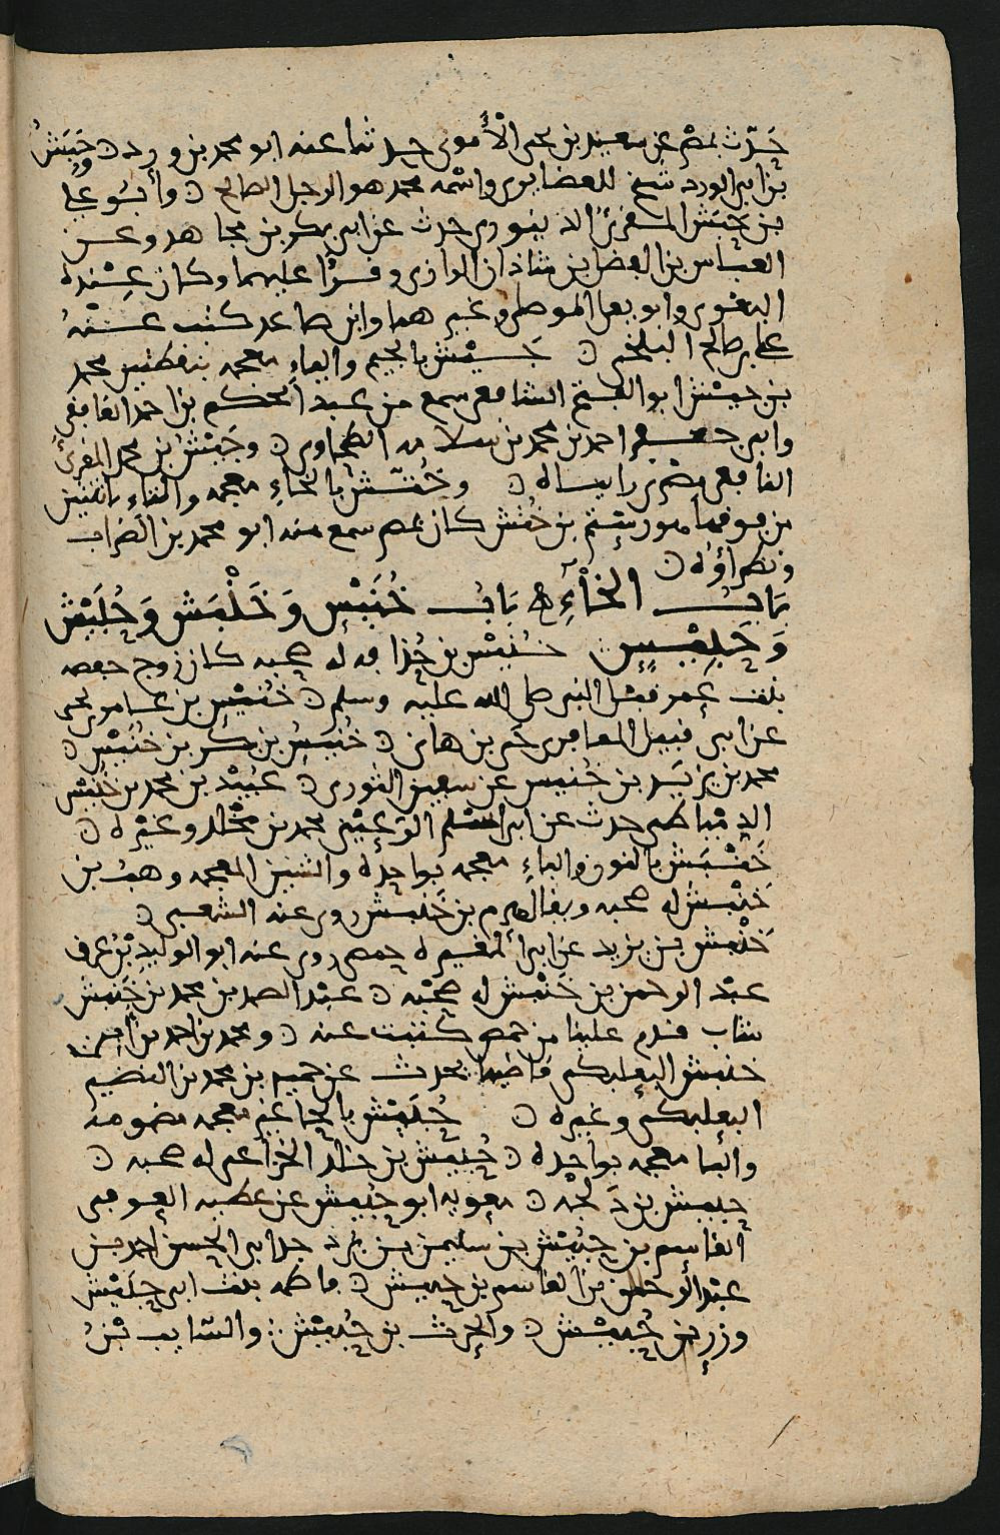 حدث بمصر عن سعيد بن يحيى الأموي حدثنا عنه ابو محمد بن ورد ۞ حبيش
بن ابي الورد شيخ للغضايري واسمه محمد هو الرجل الصالح ۞ وأبو علي
بن حبش المقرئ الدينوري حدث عن ابي بكر بن مجاهد وعن
العباس بن الفضل بن شاذان الرازي وقرأ عليهما وكان عنده
البغوي وابو يعلى الموصلي وغيرهما وابن صاعد كتب عنه
علي بن صالح البلخي ۞ جيش بالجيم والياء معجمه بنقطتين محمد
بن جيش ابو القسم الشافعي سمع من عبد الحكم بن احمد الصدفي
وابي جعفر احمد بن محمد بن سلامه الطحاوي ۞ وجيش بن محمد المقرئ
النافعي مصري رايناه ۞ وختش بالخاء معجمه والتاء باثنتين
من فوقها منورستم بن ختش كان بمصر سمع منه ابو محمد بن الضراب
ونظراؤه ۞
باب الخاء باب خنيس وخنبش وحبيش
وحبيس خنيس بن حذافه له صحبه كان زوج حفصه
بنت عمر قبل النبي صلى الله عليه وسلم ۞ خنيس بن عامر يحيى
عن ابي قبيل المعافري حي بن هانئ ۞ خنيس بن بكر بن خنيس ۞
محمد بن يزيد بن خنيس عن سفين الثوري ۞ عبيد بن محمد بن خنيس
الدمياطي حدث عن ابي اسلم الرعيني محمد بن مخلد وغيره ۞
خنبش بالنون والباء معجمه بواحده والشين المعجمه وهب بن
خنبش له صحبه ويقال هرم بن خنبش روى عنه الشعبي ۞
خنبش بن يزيد عن ابي المغيره حمصي روى عنه ابو الوليد بن عرف
عبد الرحمن بن خنبش له صحبه ۞ عبد الصمد بن محمد بن خنبش
شاب قدم علينا من حمص كتبت عنه ۞ ومحمد بن احمد بن ابي
خنبش البعلبكي قاضيها يحدث عن حميد بن محمد بن النضير
البعلبكي وغيره ۞ حبيش بالحا غير معجمه مضمومه
والبا معجمه بواحده ۞ حبيش بن خلد الخزاعي له صحبه ۞
حبيش بن دلجه ۞ معويه ابو حبيش عن عطيه العوفي
القاسم بن حبيش بن سليمن بن برد جد ابي الحسن احمد بن
عبد الرحمن بن القاسم بن حبيش ۞ فاطمه بنت ابي حبيش
وزر بن حبيش ۞ والحرث بن حبيش ۞ والسايب بن